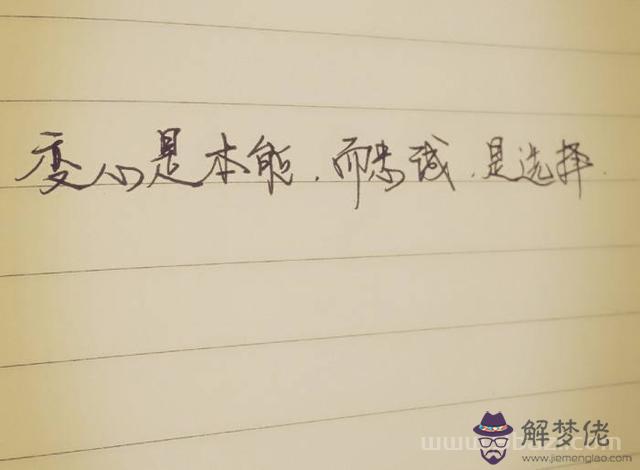 变心是本能.而忠诚.是选择.
解梦佬
www.jiemenglao.com